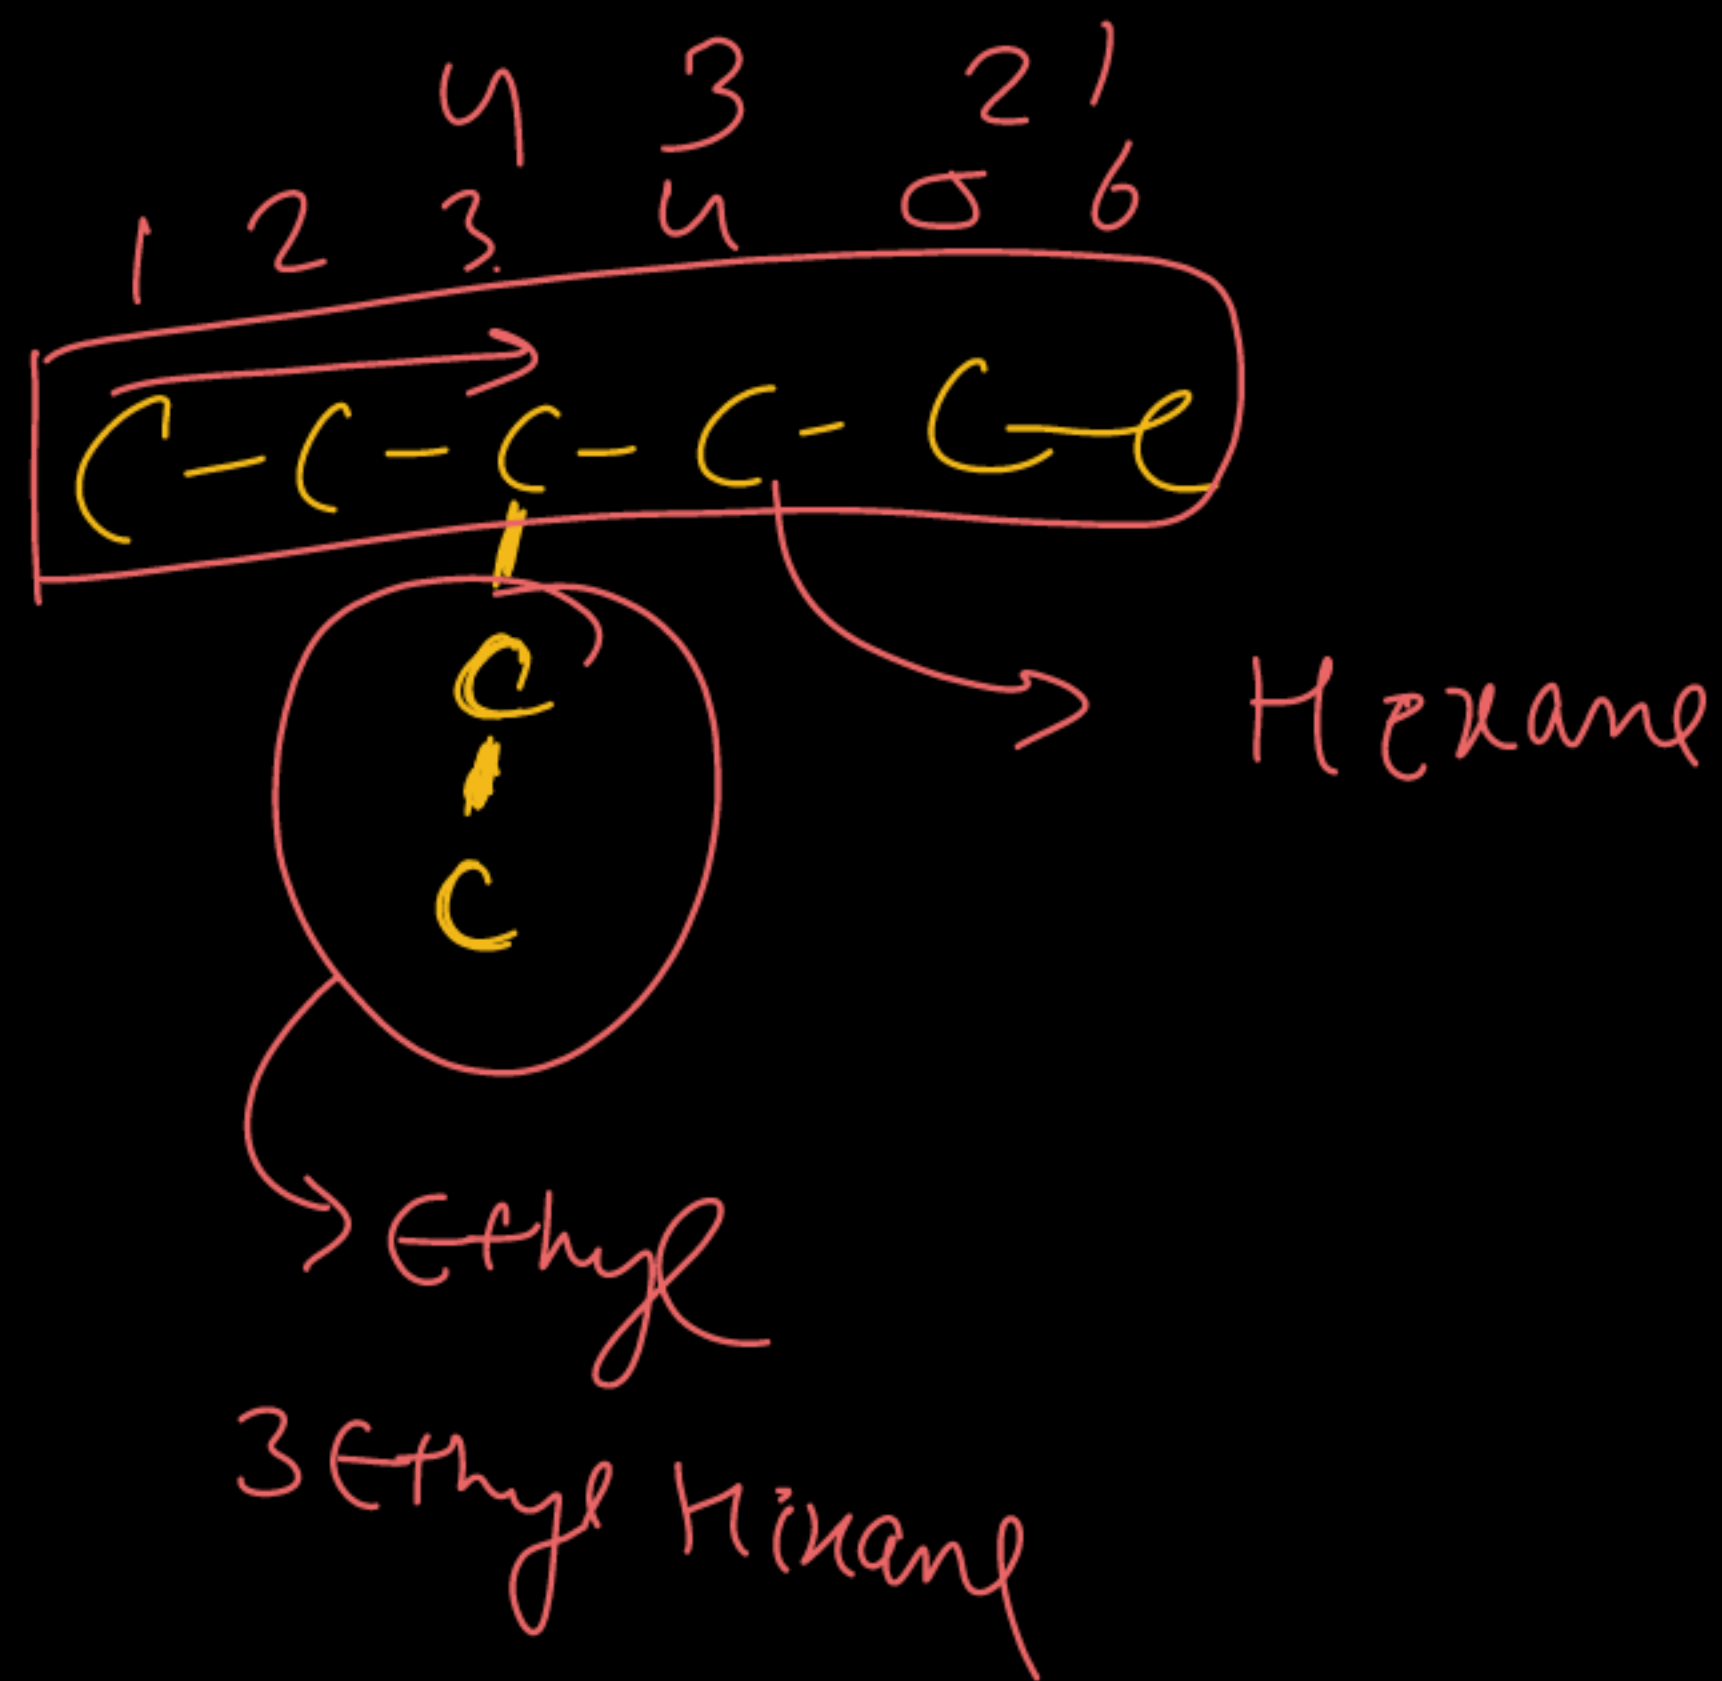 4 3 2 1
1 2 3. 4 5 6
C - C - C - C - C - C
|
C
|
C
Hexane
Ethyl
3 Ethyl Hixane